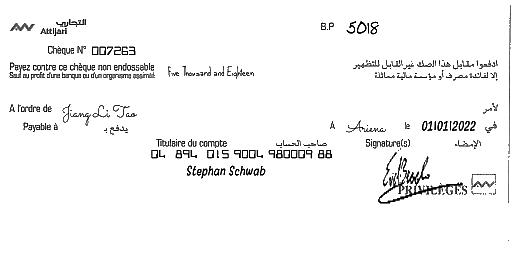 التجاري
Attijari
B.P 5018
Chèque N° 007263
Payez contre ce chèque non endossable
Sauf au profit d'une banque ou d'un organisme assimilé
Five Thousand and Eighteen
ادفعوا مقابل هذا الصك غير القابل للتظهير
إلا لفائدة مصرف أو مؤسسة مالية مماثلة
A l'ordre de Jiang Li Tao لأمر
Payable à يدفع بـ
A Ariena le 01/01/2022 في
Titulaire du compte صاحب الحساب
Signature(s) الإمضاء
04 894 015 9004 980009 88
Stephan Schwab
PRIVILÈGES